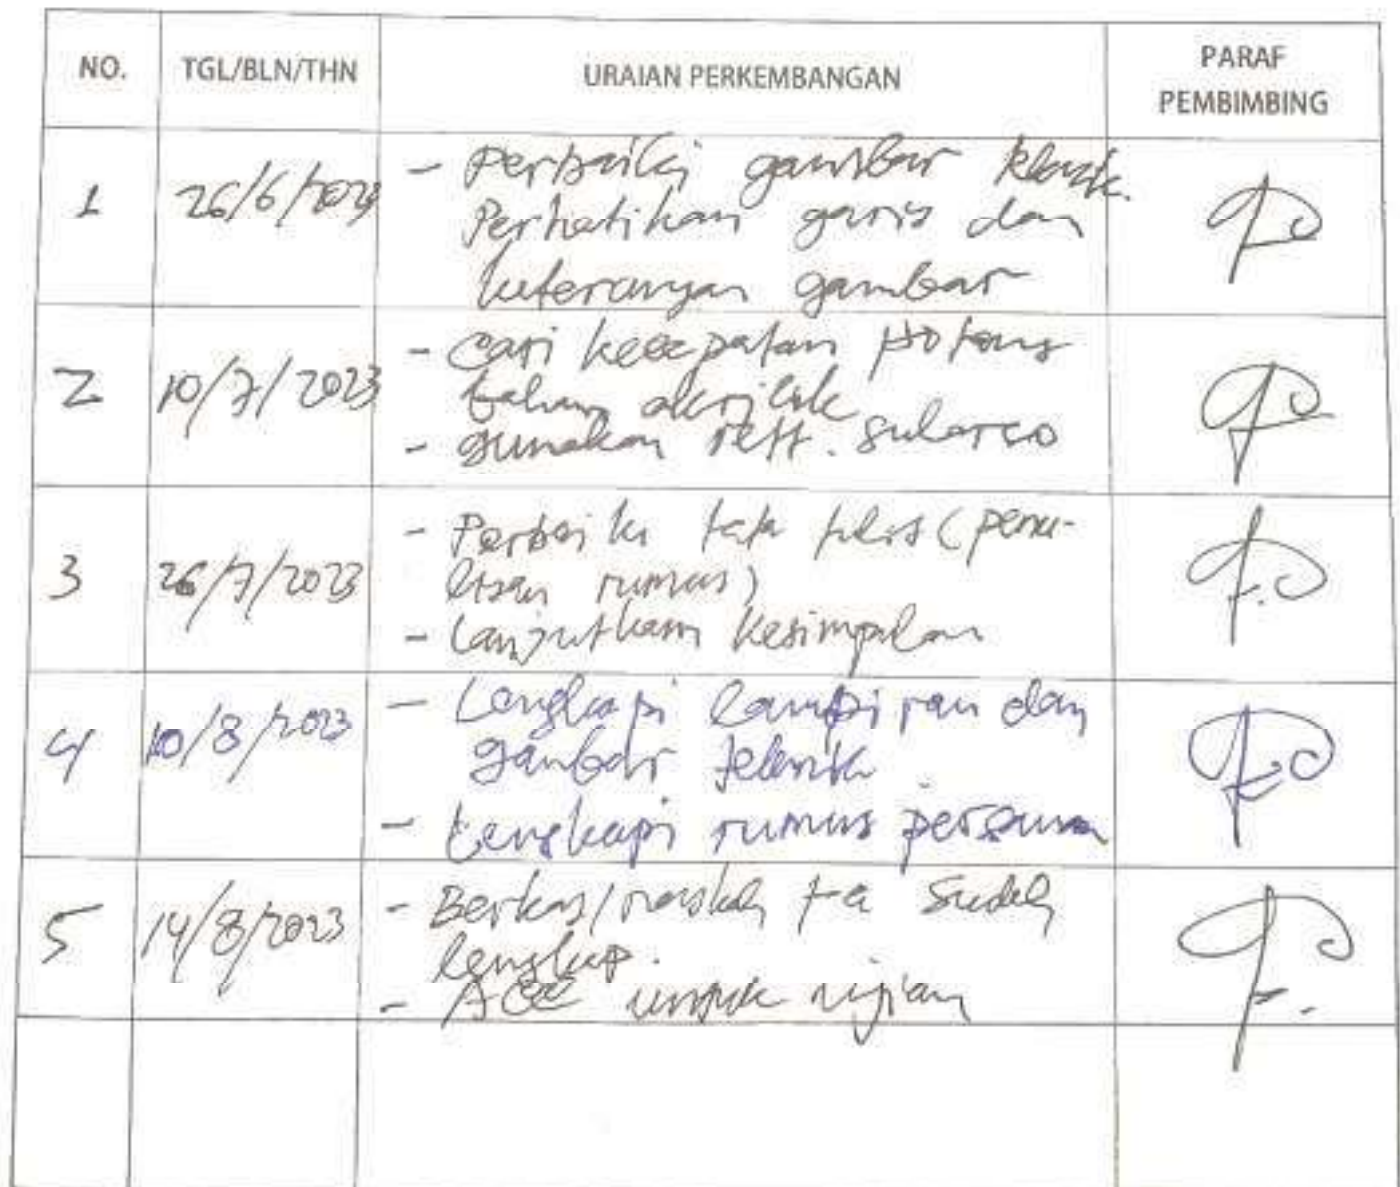 NO. TGL/BLN/THN URAIAN PERKEMBANGAN PARAF
PEMBIMBING
1 26/6/2023 - Perbaiki gambar
Perhatikan garis dan
keterangan gambar
2 10/7/2023 - Cari kecepatan potong
bahan akrilik
- gunakan reff. sularso
3 26/7/2023 - Perbaiki tata tulis (penu-
lisan rumus)
- Lanjutkan Kesimpulan
4 10/8/2023 - Lengkapi lampiran dan
gambar teknik
- Lengkapi rumus
5 14/8/2023 - Berkas/naskah ta sudah
lengkap.
- ACC untuk ujian